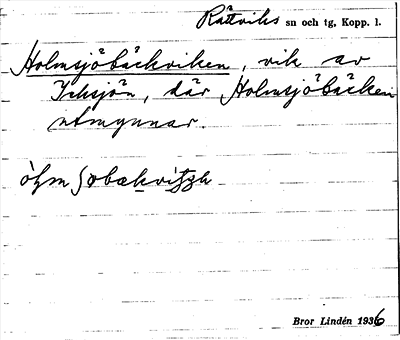 Rättviks sn och tg, Kopp. l.
Holmsjöbäckviken, vik av
där Holmsjöbäcken
utmynnar.
Bror Lindén 1936